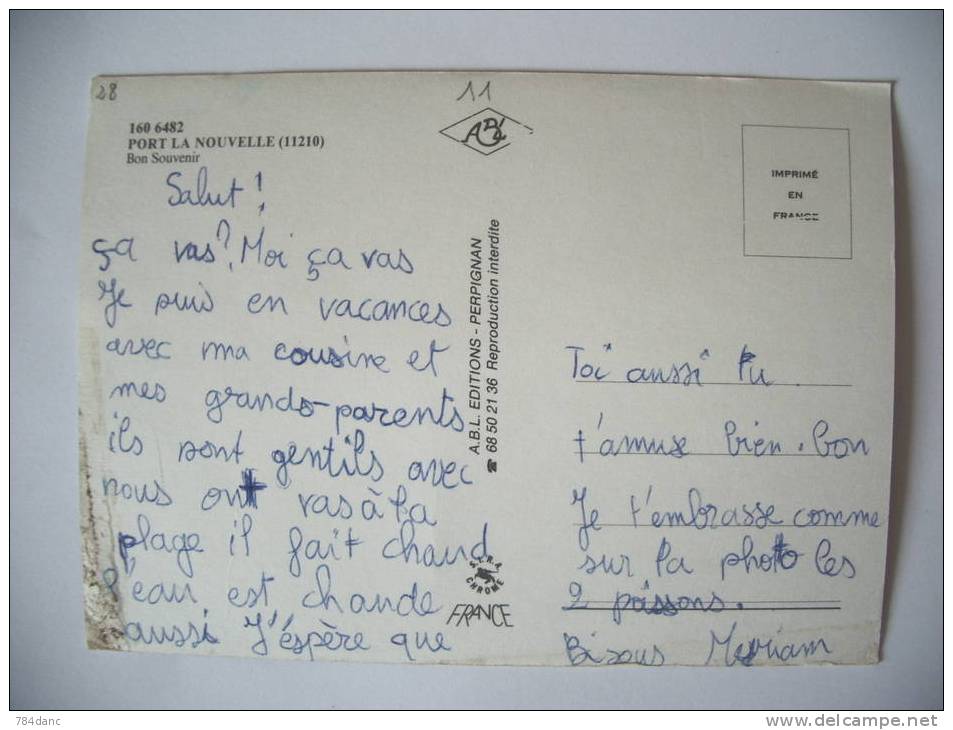 28
11
160 6482
PORT LA NOUVELLE (11210)
Bon Souvenir
ABL
IMPRIMÉ
EN
FRANCE
Salut !
ça vas ? Moi ça vas
Je suis en vacances
avec ma cousine et
mes grands-parents
ils sont gentils avec
nous ont vas à la
plage il fait chaud
l'eau est chaude
aussi J'éspère que
A.B.L. EDITIONS - PERPIGNAN
☎ 68 50 21 36 Reproduction interdite
CHROME
FRANCE
Toi aussi tu
t'amuse bien. bon
Je t'embrasse comme
sur la photo les
2 poissons.
Bisous Meriam
784danc
delcampe.net